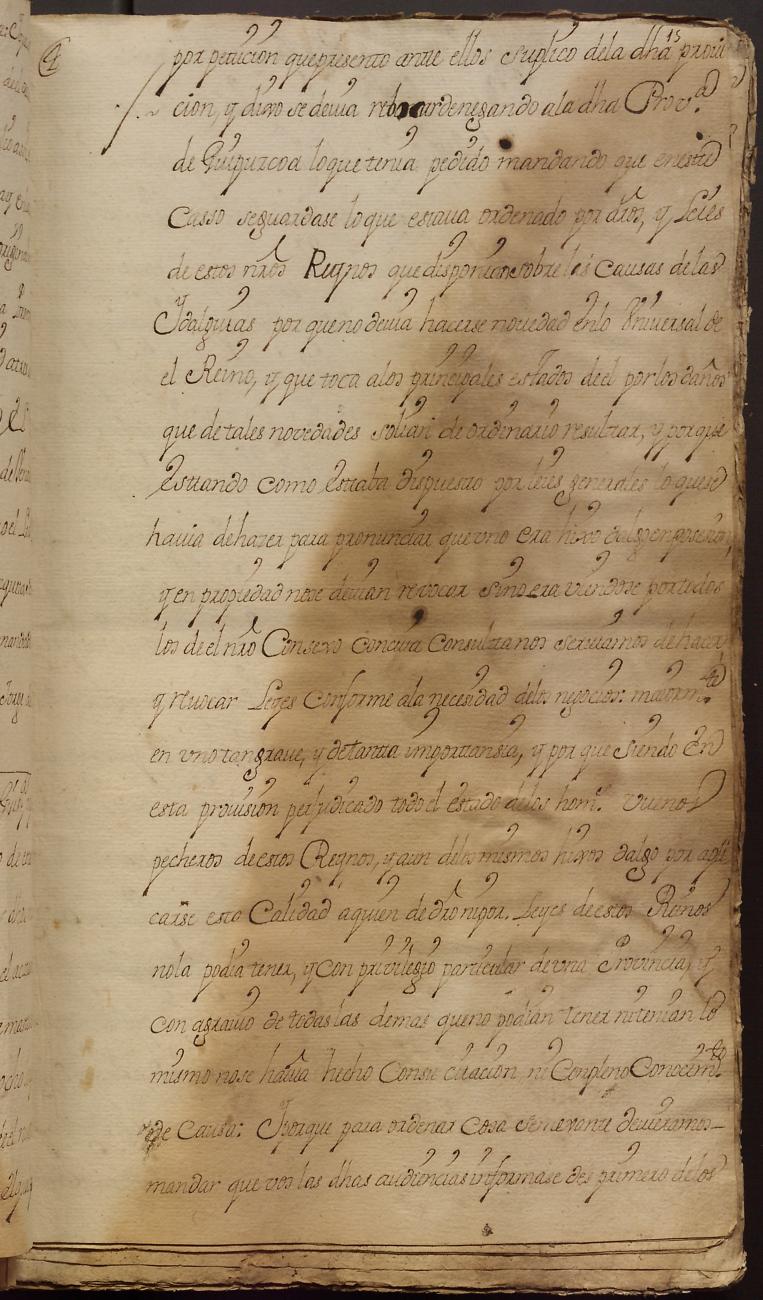 4
15
por peticion que presento ante ellos suplico dela dha provi
cion, y dixo se devia rebocar denegando ala dha Prov.ª
de Guipuzcoa loque tenia pedido mandando que en este
Casso seguardase lo que estava ordenado por dros, y Leies
de estos nros Reynos que disponian sobre las Causas de las
Ydalguias por que no devia hacerse novedad enlo Vniversal de
el Reino, y que toca alos principales estados de el por los daños
que de tales novedades solian de ordinario resultar, y porque
Estando como Estaba dispuesto por leies generales lo que se
havia de hazer para pronunciar que vno era hixo dalgo en posesion
y en propiedad no se devian revocar sino era viendose por todos
los de el nro Consexo con consultanos serviamos de hacer
y revocar Leyes Conforme ala necesidad delos negocios: maiorm.te
en vno tan grave, y de tanta importansia, y por que siendo En
esta provision perjudicado todo el estado delos hom.s vuenos
pecheros de estos Reynos, y aun delos mismos hixos dalgo por apli
carse esta Calidad a quien de dro ni por Leyes de estos Reinos
nola podia tener, y Con privilegio particular de vna Provincia, y
con agravio de todas las demas que no podian tener ni tenian lo
mismo no se havia hecho Con su citacion, ni Con pleno Conocim.to
de Causa: Y porque para ordenar Cosa semexante devieramos
mandar que vos las dhas audiencias informase des primero delos